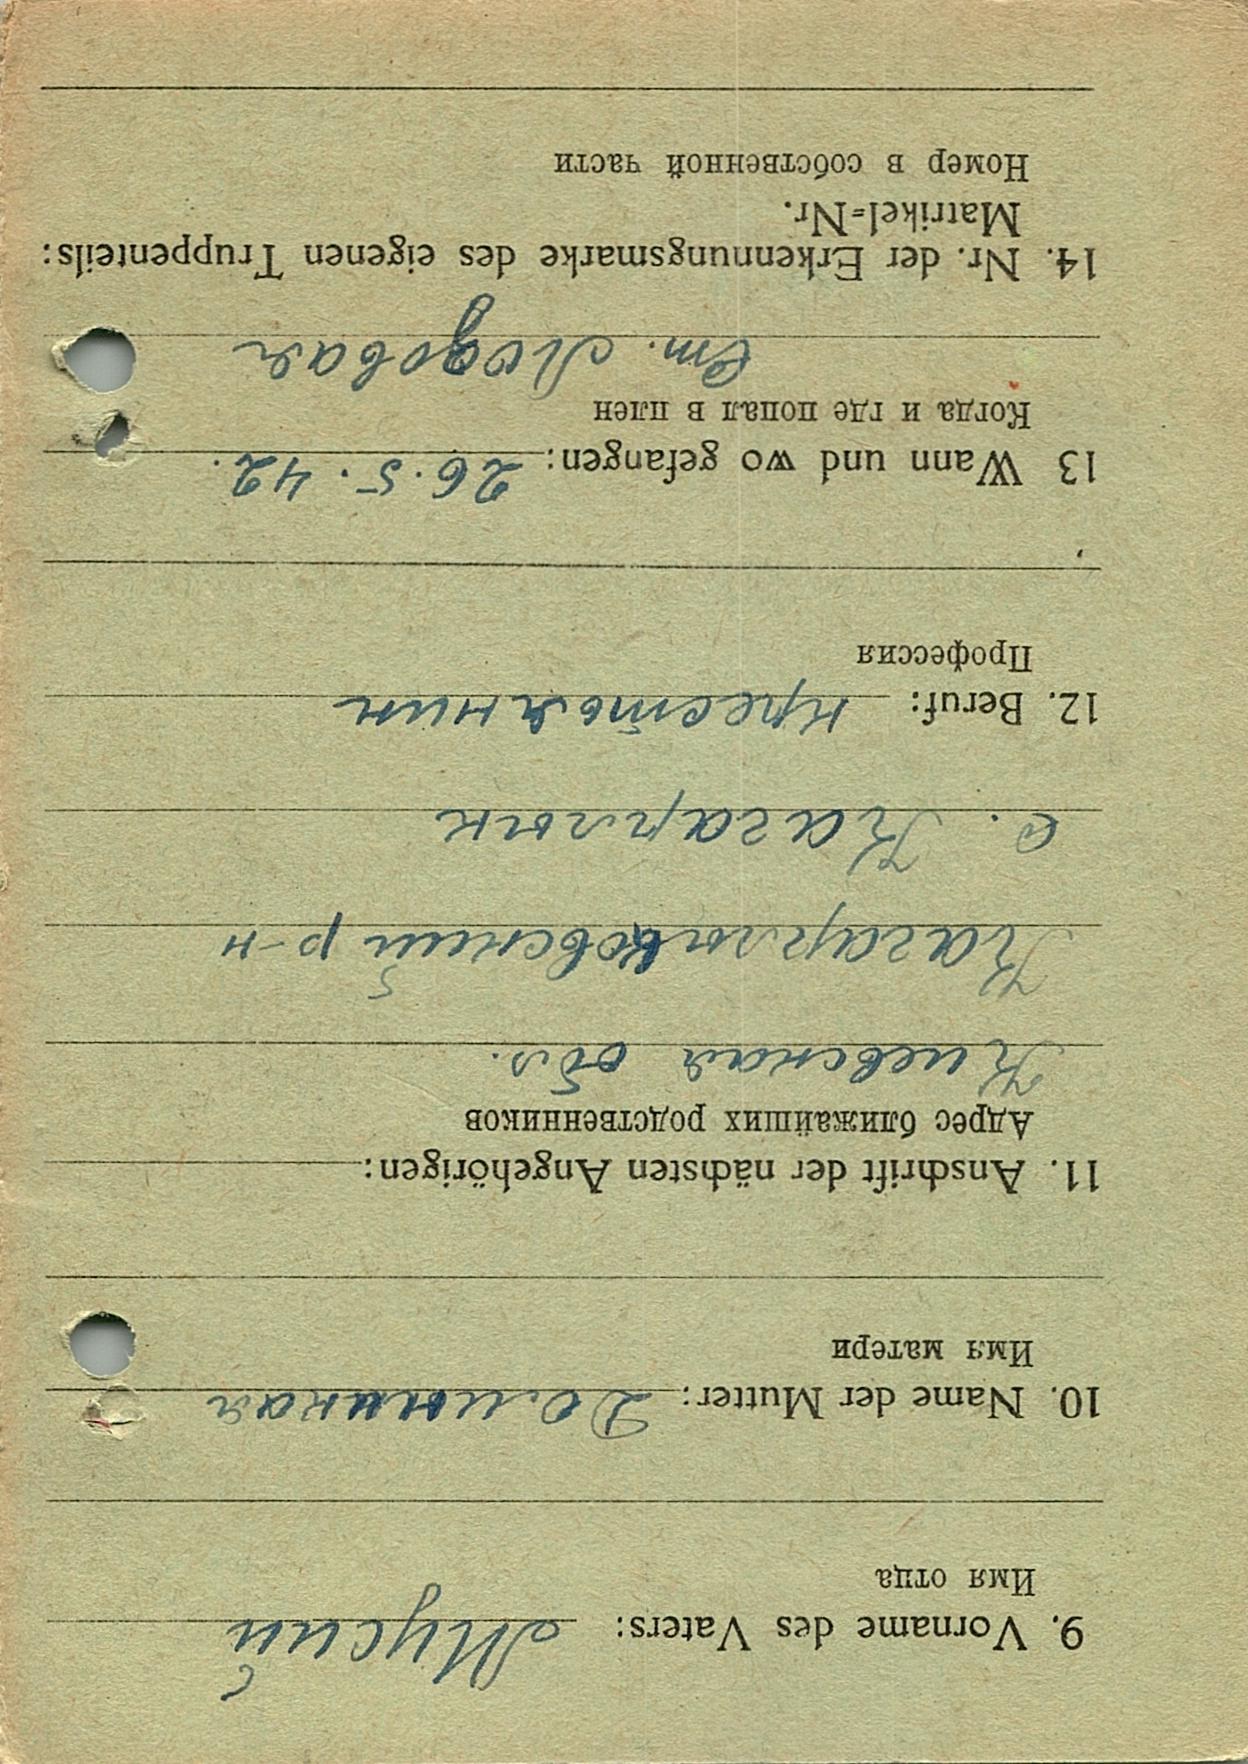 9. Vorname des Vaters: Мусий
Имя отца
10. Name der Mutter:
Имя матери
11. Anschrift der nächsten Angehörigen:
Адрес ближайших родственников
Киевская обл.
Кагарлыковский р-н
с. Кагарлык
12. Beruf: крестьянин
Профессия
13 Wann und wo gefangen: 26.5.42.
Когда и где попал в плен
ст. Лозовая
14. Nr. der Erkennungsmarke des eigenen Truppenteils:
Matrikel=Nr.
Номер в собственной части